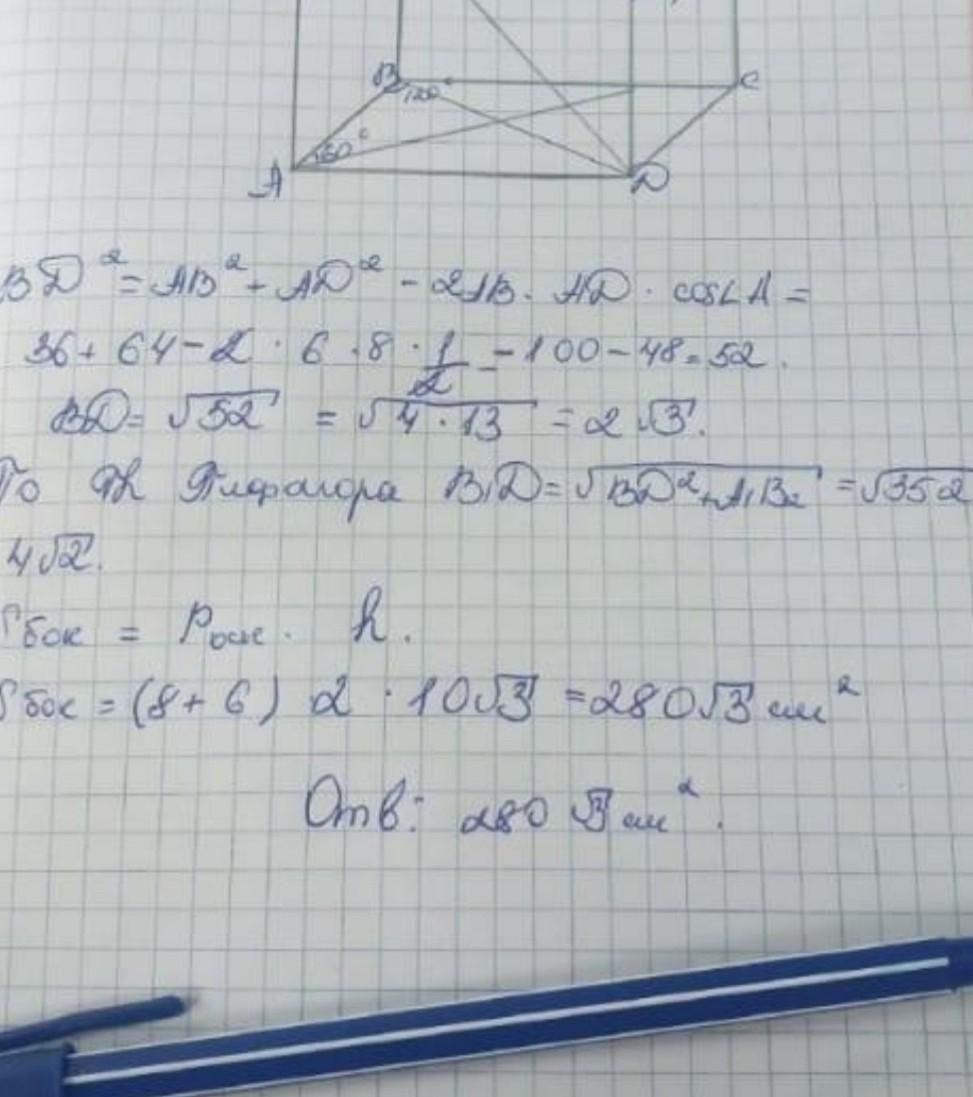 B 120° C
60°
A D
BD² = AB² + AD² - 2AB · AD · cos∠A =
36 + 64 - 2 · 6 · 8 · 1/2 = 100 - 48 = 52.
BD = √52 = √4 · 13 = 2√3.
По Th Пифагора B₁D = √BD² + A₁B₂ = √352
4√2.
Sбок = Pосн · h.
Sбок = (8 + 6) 2 · 10√3 = 280√3 см²
Отв: 280√3 см².